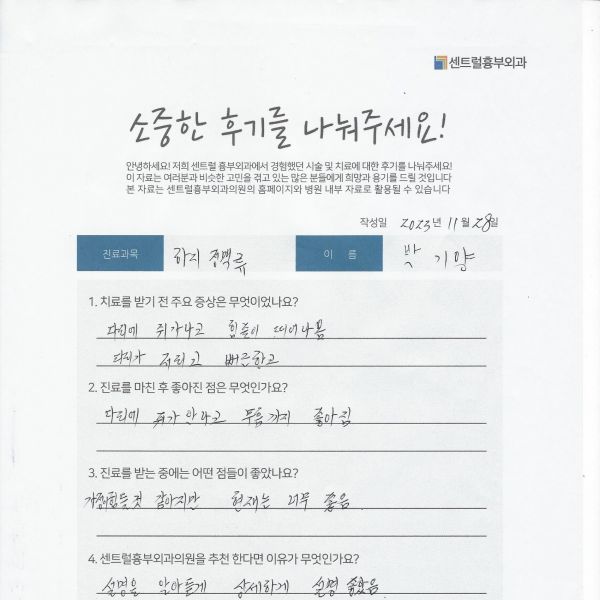 센트럴흉부외과
소중한 후기를 나눠주세요!
안녕하세요! 저희 센트럴 흉부외과에서 경험했던 시술 및 치료에 대한 후기를 나눠주세요!
이 자료는 여러분과 비슷한 고민을 겪고 있는 많은 분들에게 희망과 용기를 드릴 것입니다
본 자료는 센트럴흉부외과의원의 홈페이지와 병원 내부 자료로 활용될 수 있습니다
작성일 2023년 11월 28일
진료과목 하지 정맥류 이 름 박 기양
1. 치료를 받기 전 주요 증상은 무엇이었나요?
다리에 쥐가나고 힘줄이 튀어나옴
다리가 저리고 뻐근하고
2. 진료를 마친 후 좋아진 점은 무엇인가요?
다리에 쥐가 안나고 무릎까지 좋아짐
3. 진료를 받는 중에는 어떤 점들이 좋았나요?
같아지만 현재는 너무 좋음
4. 센트럴흉부외과의원을 추천 한다면 이유가 무엇인가요?
설명을 알아듣게 상세하게 설명 좋았음